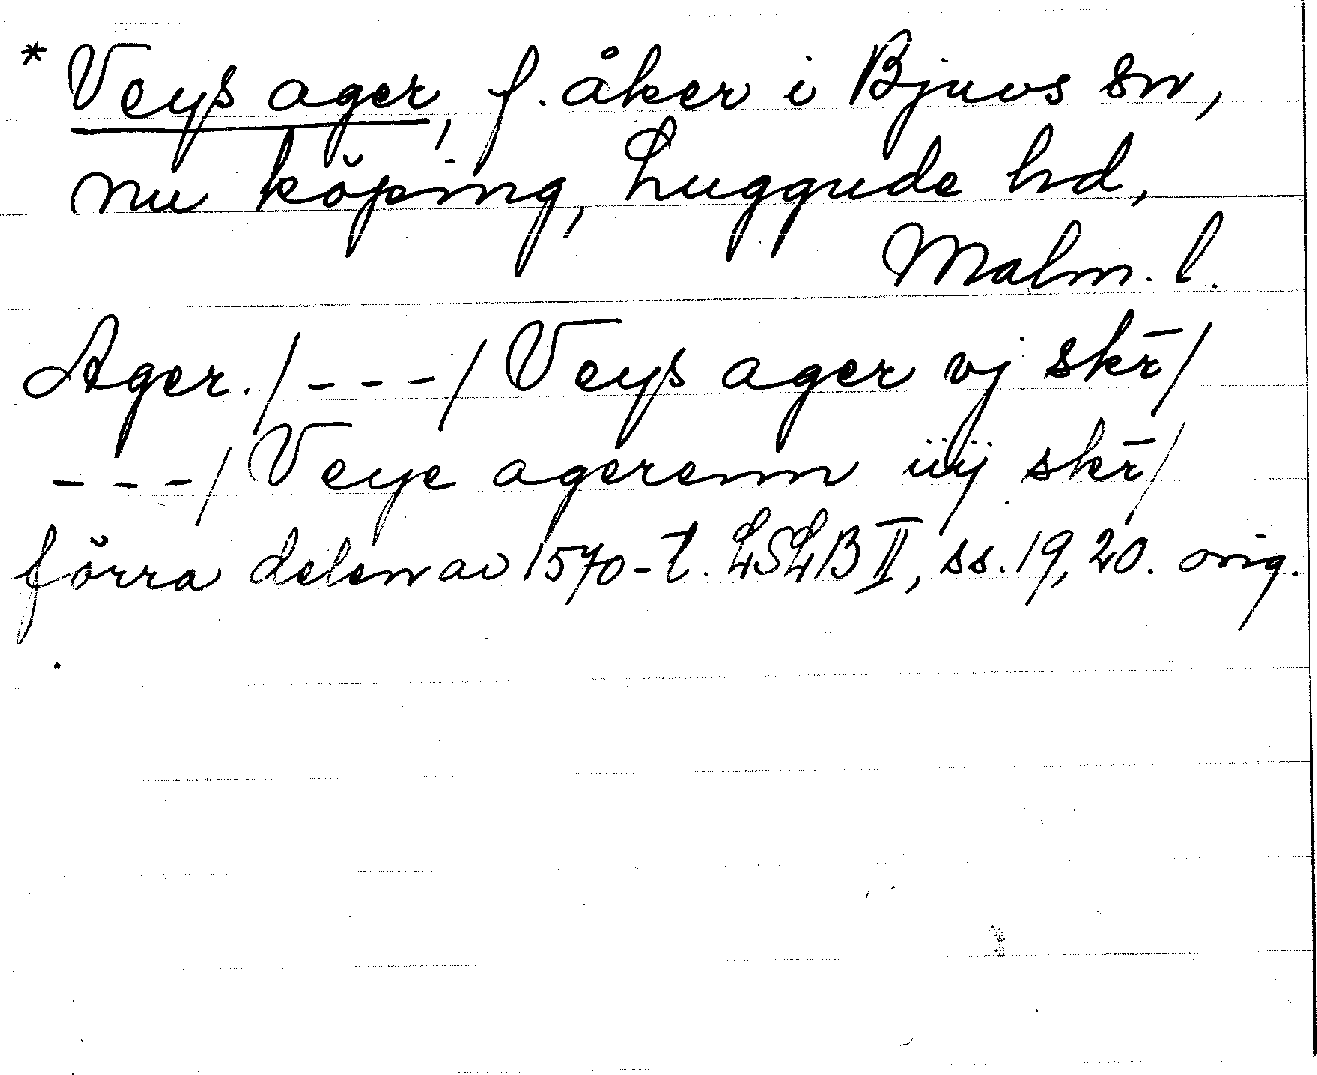 * Veys ager, f. åker i Bjuvs sn,
nu köping, Luggude hd,
Malm. l.
Ager. / - - - / Veys ager vj skr̄ /
- - - / Veye agerenn iiij skr̄ /
förra delen av 1570-t. LSLB II, ss. 19, 20. orig.